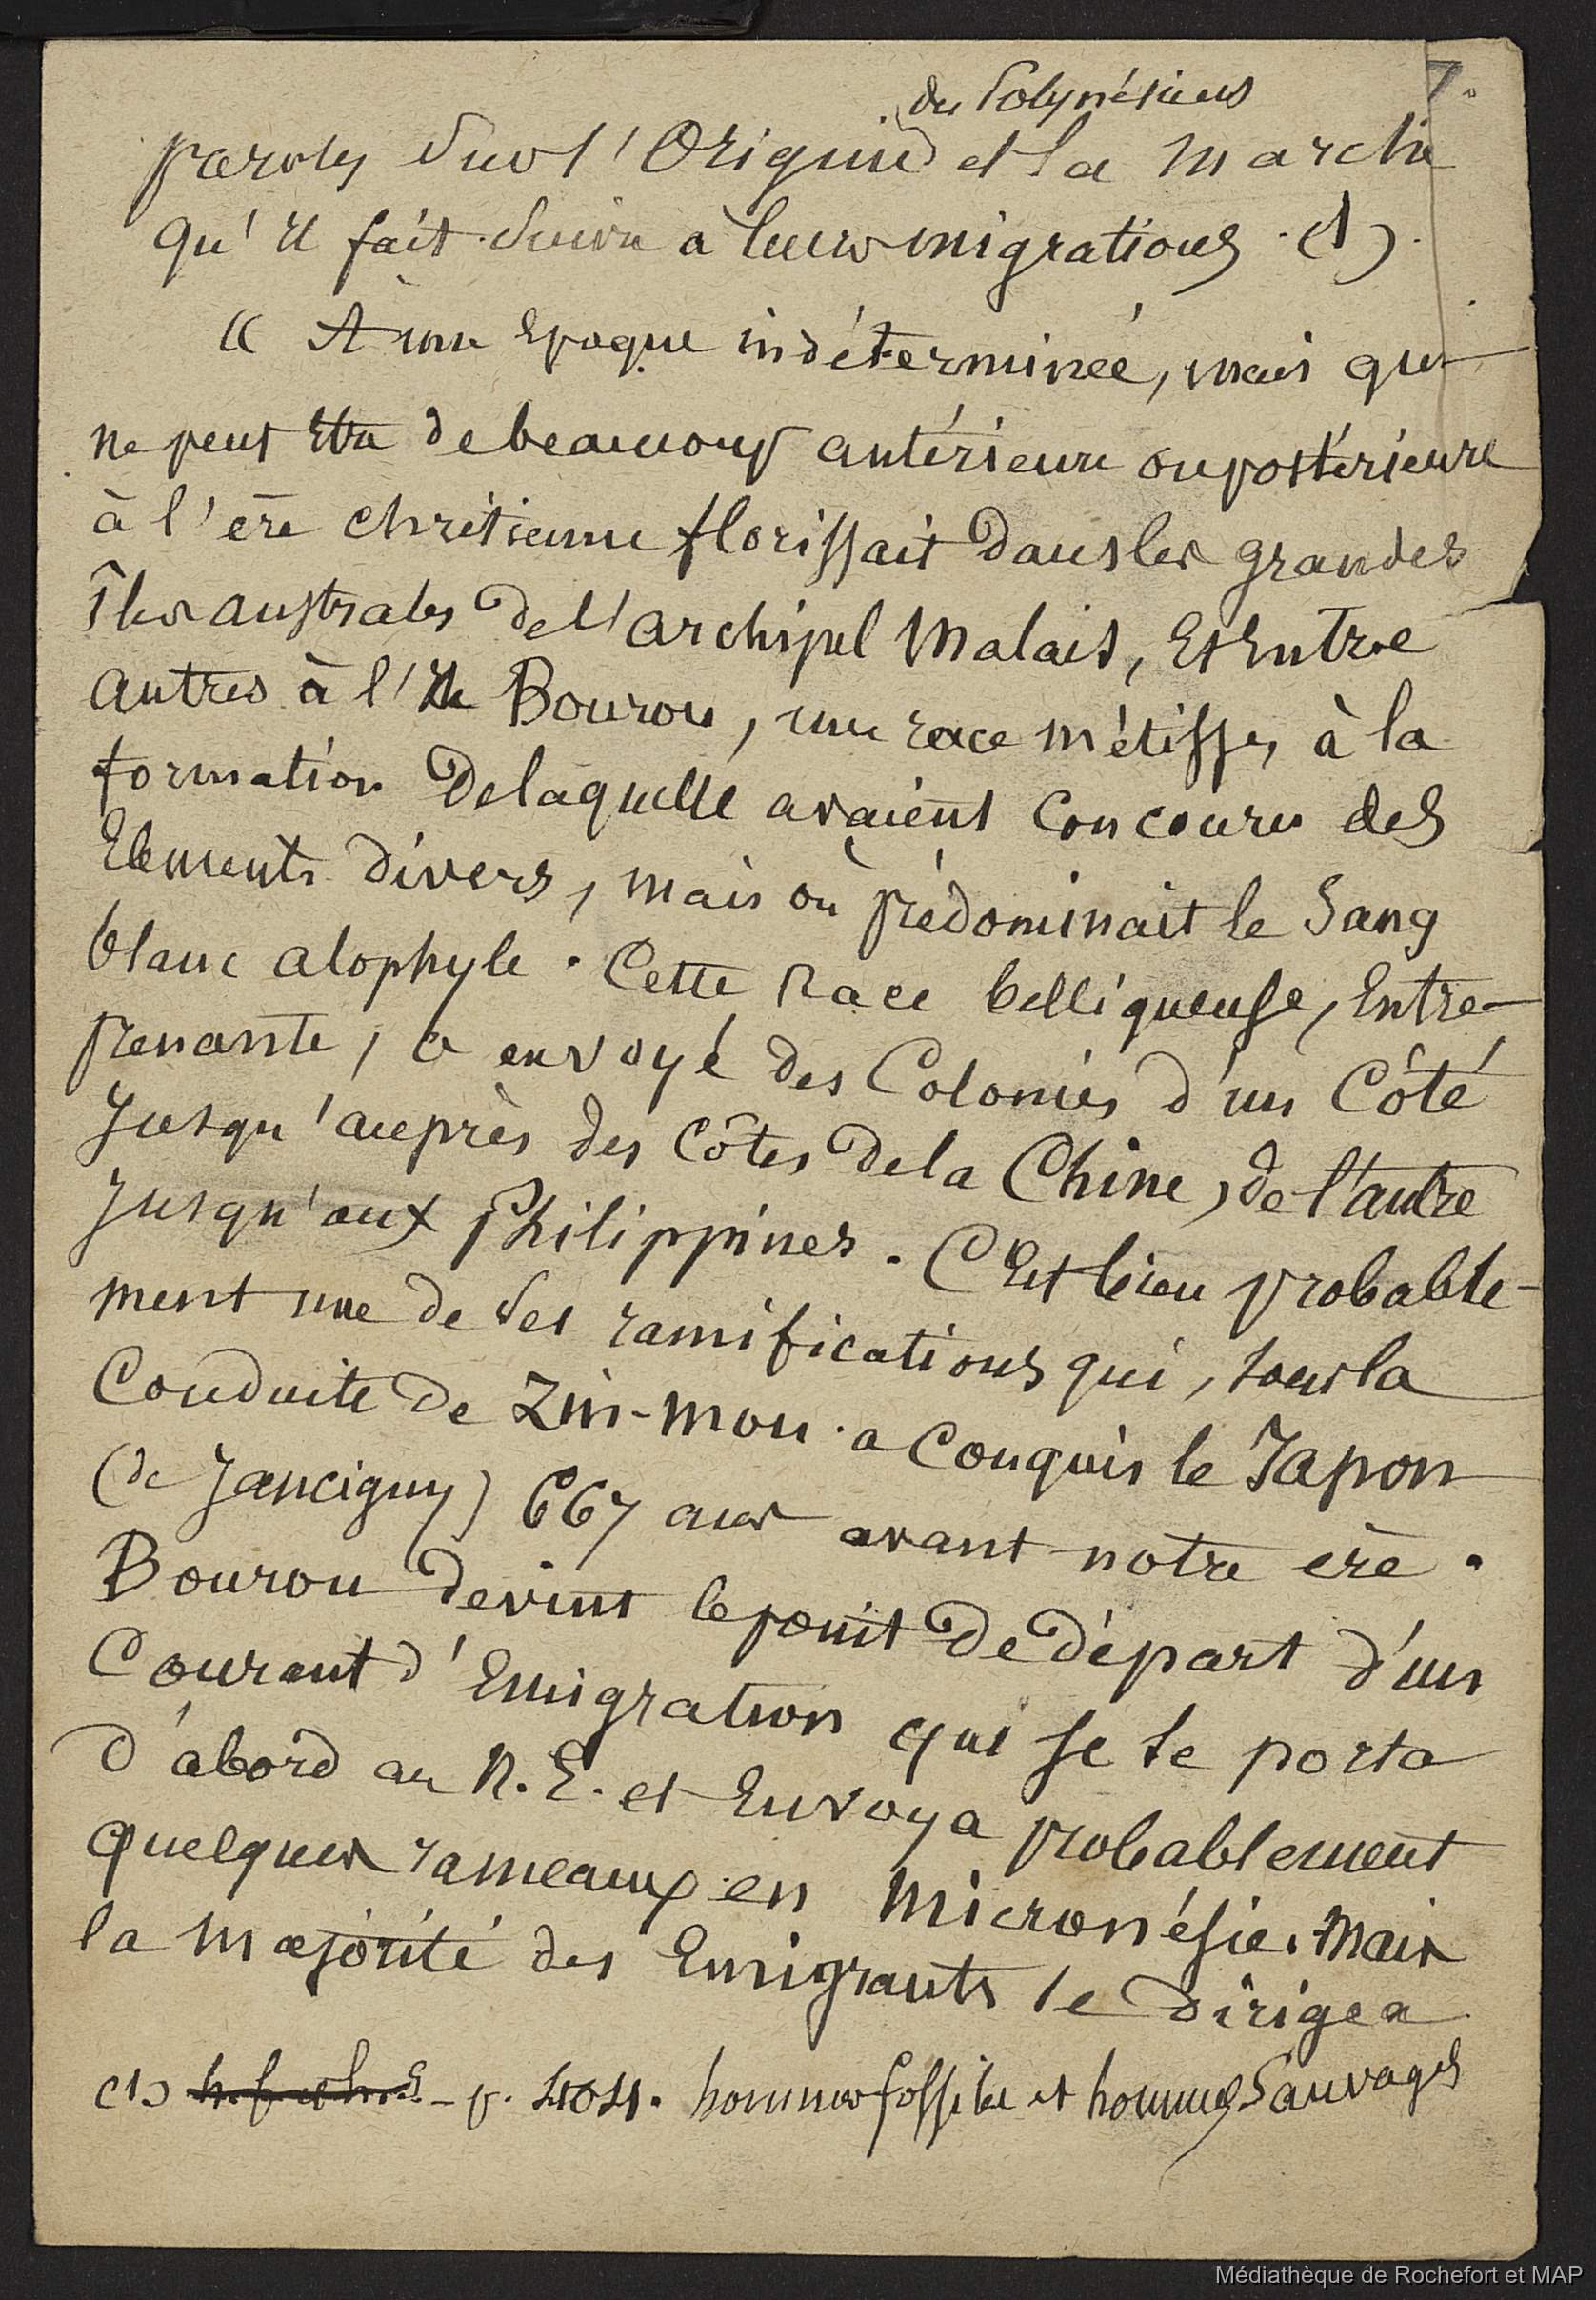 7.
des Polynésiens
paroles sur l'Origine et la marche
qu'il fait suivre à leurs migrations. (1).
« A une Epoque indéterminée, mais qui
ne peut Etre de beaucoup antérieure ou postérieure
à l'ère chrétienne florissait dans les grandes
Îles australes de l'archipel Malais, Et Entre
autres à l'Ile Bourou, une race métisse, à la
formation de laquelle avaient Concouru des
Elements divers, mais où prédominait le Sang
blanc alophyle. Cette Race belliqueuse, Entre-
prenante, a envoyé des Colonies d'un Côté
Jusqu'auprès des Côtes de la Chine, de l'autre
Jusqu'aux Philippines. C'Est bien probable-
ment une de ses ramifications qui, sous la
Conduite de Zin-mou. a Conquis le Japon
(de Jancigny) 667 ans avant notre ère.
Bourou devint le point de départ d'un
Courant d'Emigration qui se se porta
d'abord au N. E. et Envoya probablement
quelques rameaux en Micronésie. Mais
la majorité des Emigrants se dirigea
(1) - p. 404. hommes fossiles et hommes Sauvages
Médiathèque de Rochefort et MAP